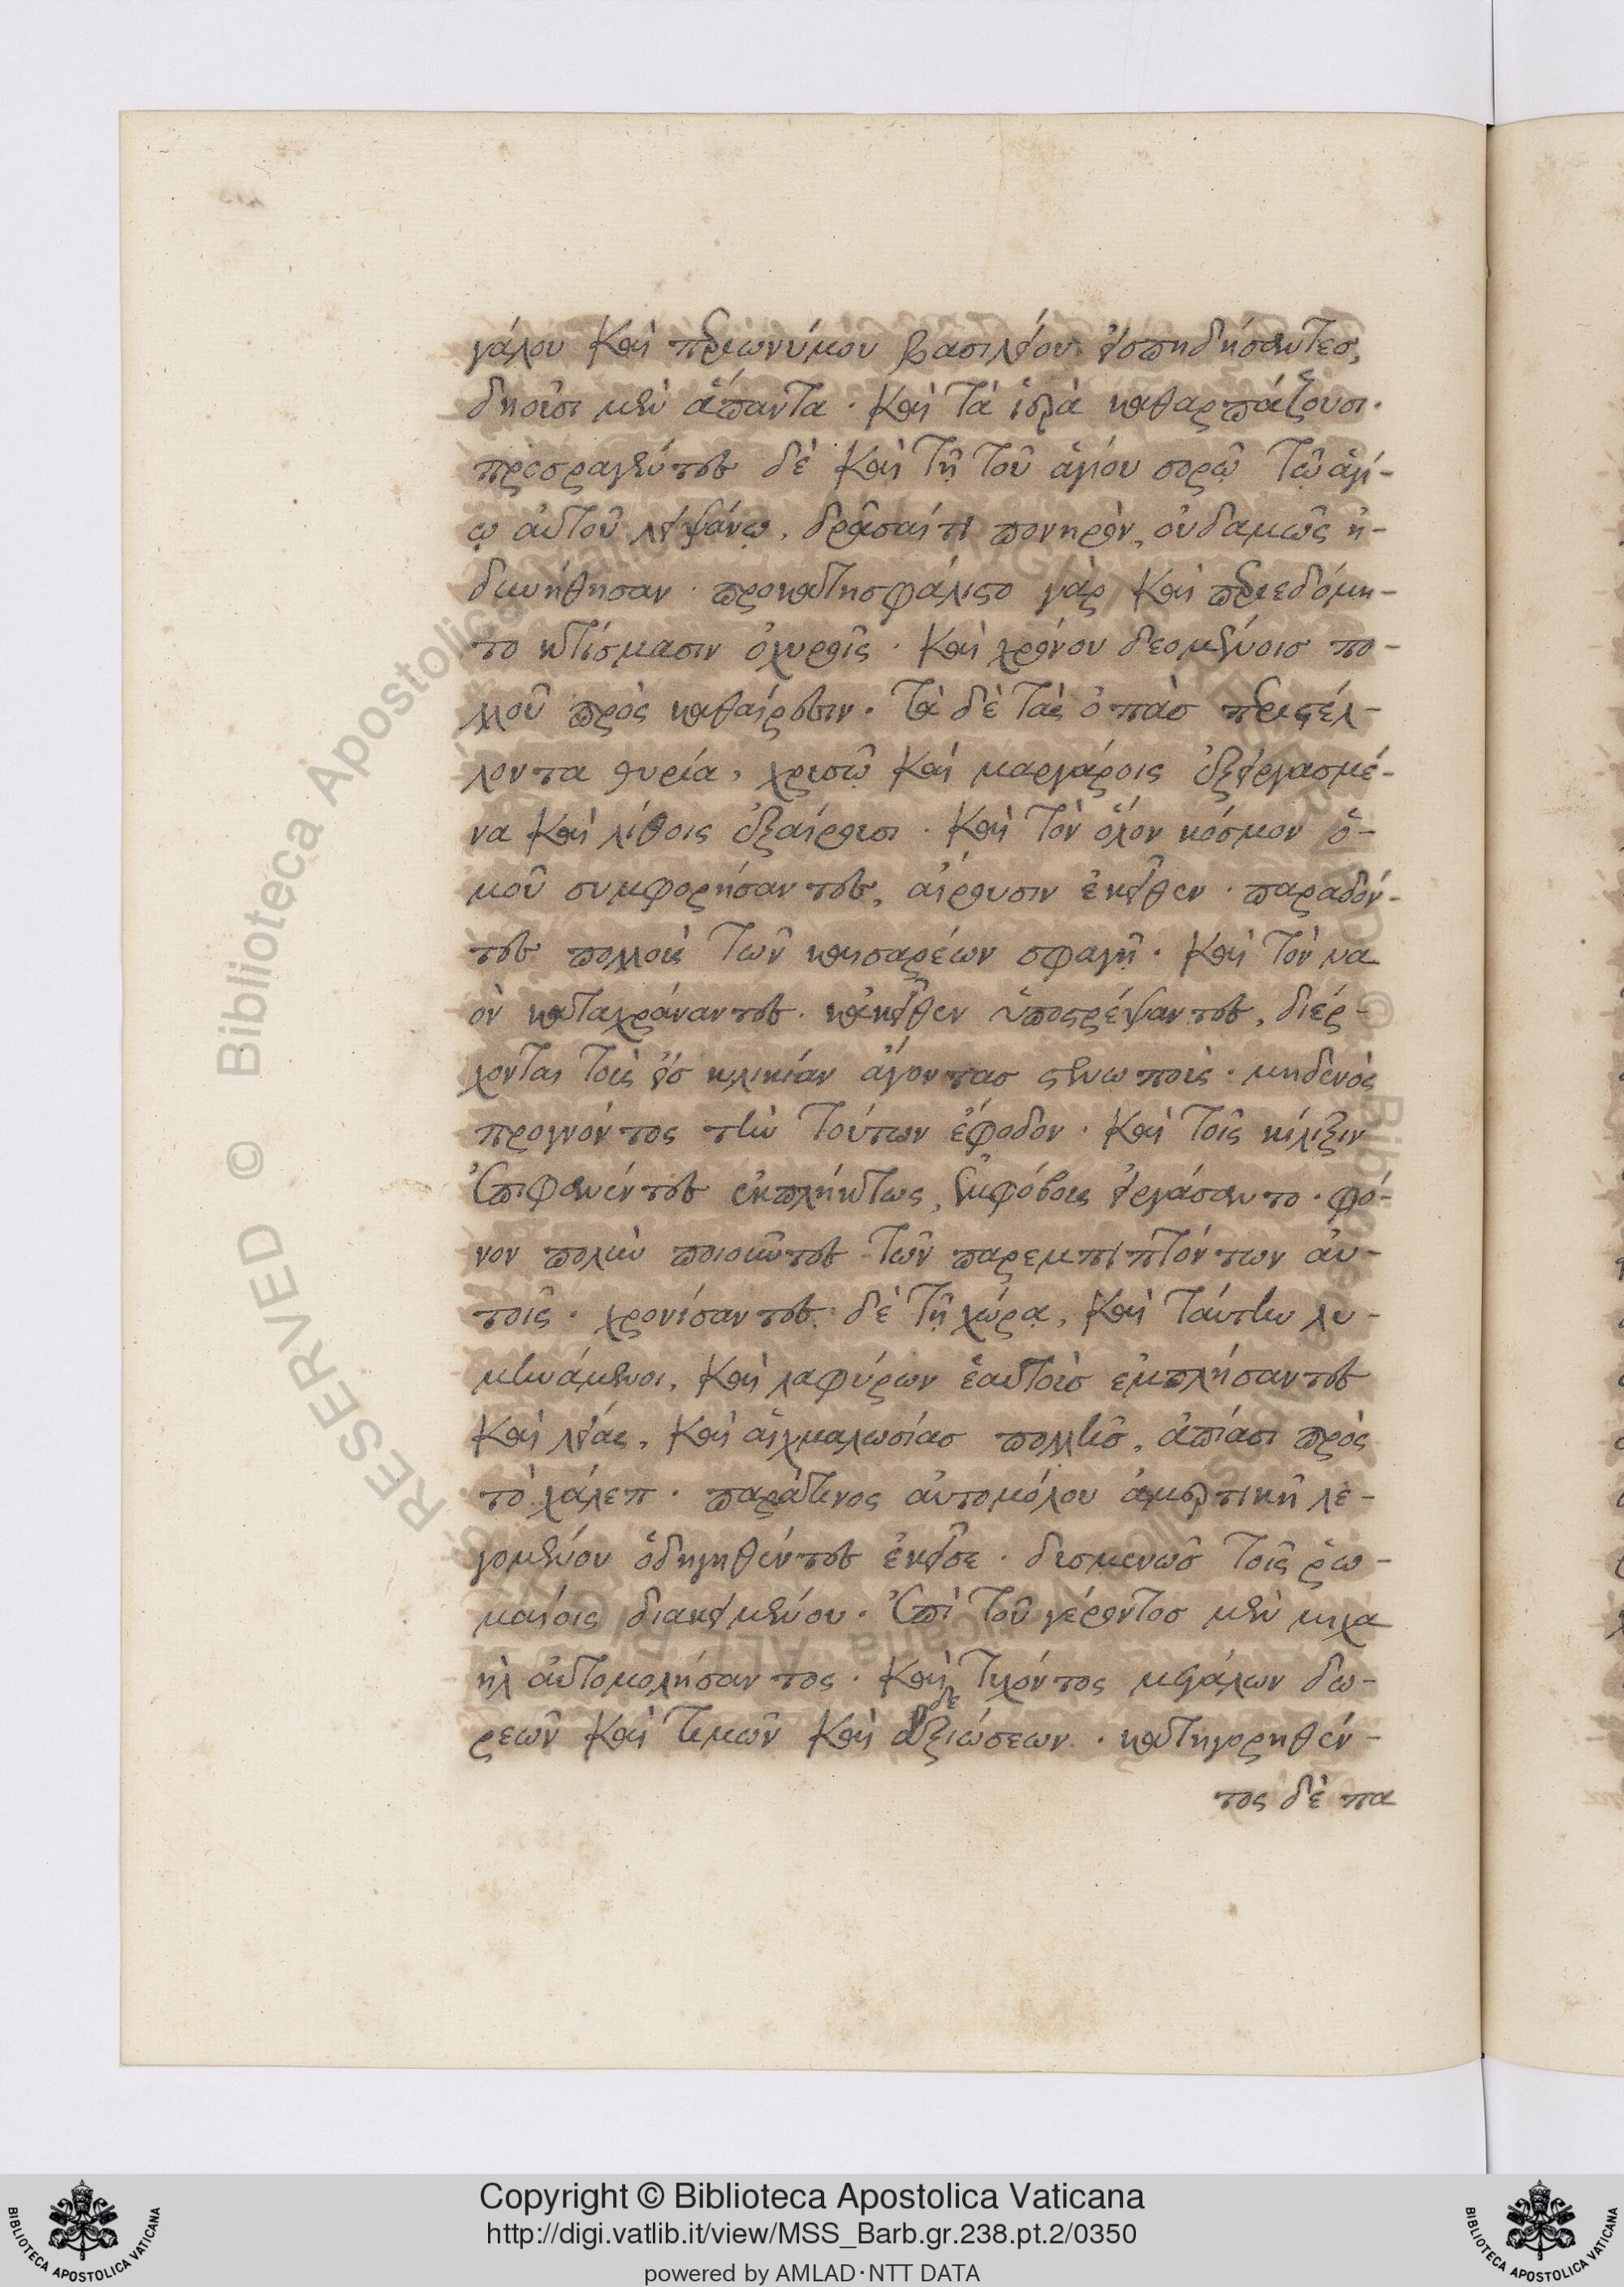 γάλου καὶ περιωνύμου βασιλείου εἰσπηδήσαντες,
δηοῦσι μὲν ἅπαντα. καὶ τὰ ἱερὰ καθαρπάζουσι.
προσραγέντες δὲ καὶ τῇ τοῦ ἁγίου σορῷ τῷ ἁγί-
ῳ αὐτοῦ λειψάνῳ, δρᾶσαί τι πονηρὸν, οὐδαμῶς ἠ-
δυνήθησαν. προκατησφάλιστο γὰρ καὶ περιεδόμη-
το κτίσμασιν ὀχυροῖς. καὶ χρόνου δεομένοις πο-
λλοῦ πρὸς καθαίρεσιν. τὰ δὲ τὰς ὀπὰς περιστέλ-
λοντα θυρία, χρυσῷ καὶ μαργάροις ἐξειργασμέ-
να καὶ λίθοις ἐξαίρουσι. καὶ τὸν ὅλον κόσμον ὁ-
μοῦ συμφορήσαντες, αἴρουσιν ἐκεῖθεν. παραδόν-
τες πολλοὺς τῶν καισαρέων σφαγῇ. καὶ τὸν να
ὸν καταχράναντες. κἀκεῖθεν ὑποστρέψαντες, διέρ-
χονται τοὺς εἰς κιλικίαν ἄγοντας στενωπούς. μηδενὸς
προγνόντος τὴν τούτων ἔφοδον. καὶ τοῖς κίλιξιν
ἐπιφανέντες ἐκπλήκτως, ἐκφόβους εἰργάσαντο. φό-
νον πολὺν ποιοῦντες τῶν παρεμπιπτόντων αὐ-
τοῖς. χρονίσαντες δὲ τῇ χώρᾳ, καὶ ταύτην λυ-
μηνάμενοι, καὶ λαφύρων ἑαυτοὺς ἐμπλήσαντες
καὶ λείας, καὶ αἰχμαλωσίας πολλῆς, ἀπίασι πρὸς
τὸ χάλεπ. παρά τινος αὐτομόλου ἀμερτικῆ λε-
γομένου ὁδηγηθέντες ἐκεῖσε. δυσμενῶς τοῖς ῥω-
μαίοις διακειμένου. ἐπὶ τοῦ γέροντος μὲν μιχα
ὴλ αὐτομολήσαντος. καὶ τυχόντος μεγάλων δω-
ρεῶν καὶ τιμῶν καὶ δεξιώσεων. κατηγορηθέν-
τος δὲ πα
Copyright © Biblioteca Apostolica Vaticana
http://digi.vatlib.it/view/MSS_Barb.gr.238.pt.2/0350
powered by AMLAD·NTT DATA